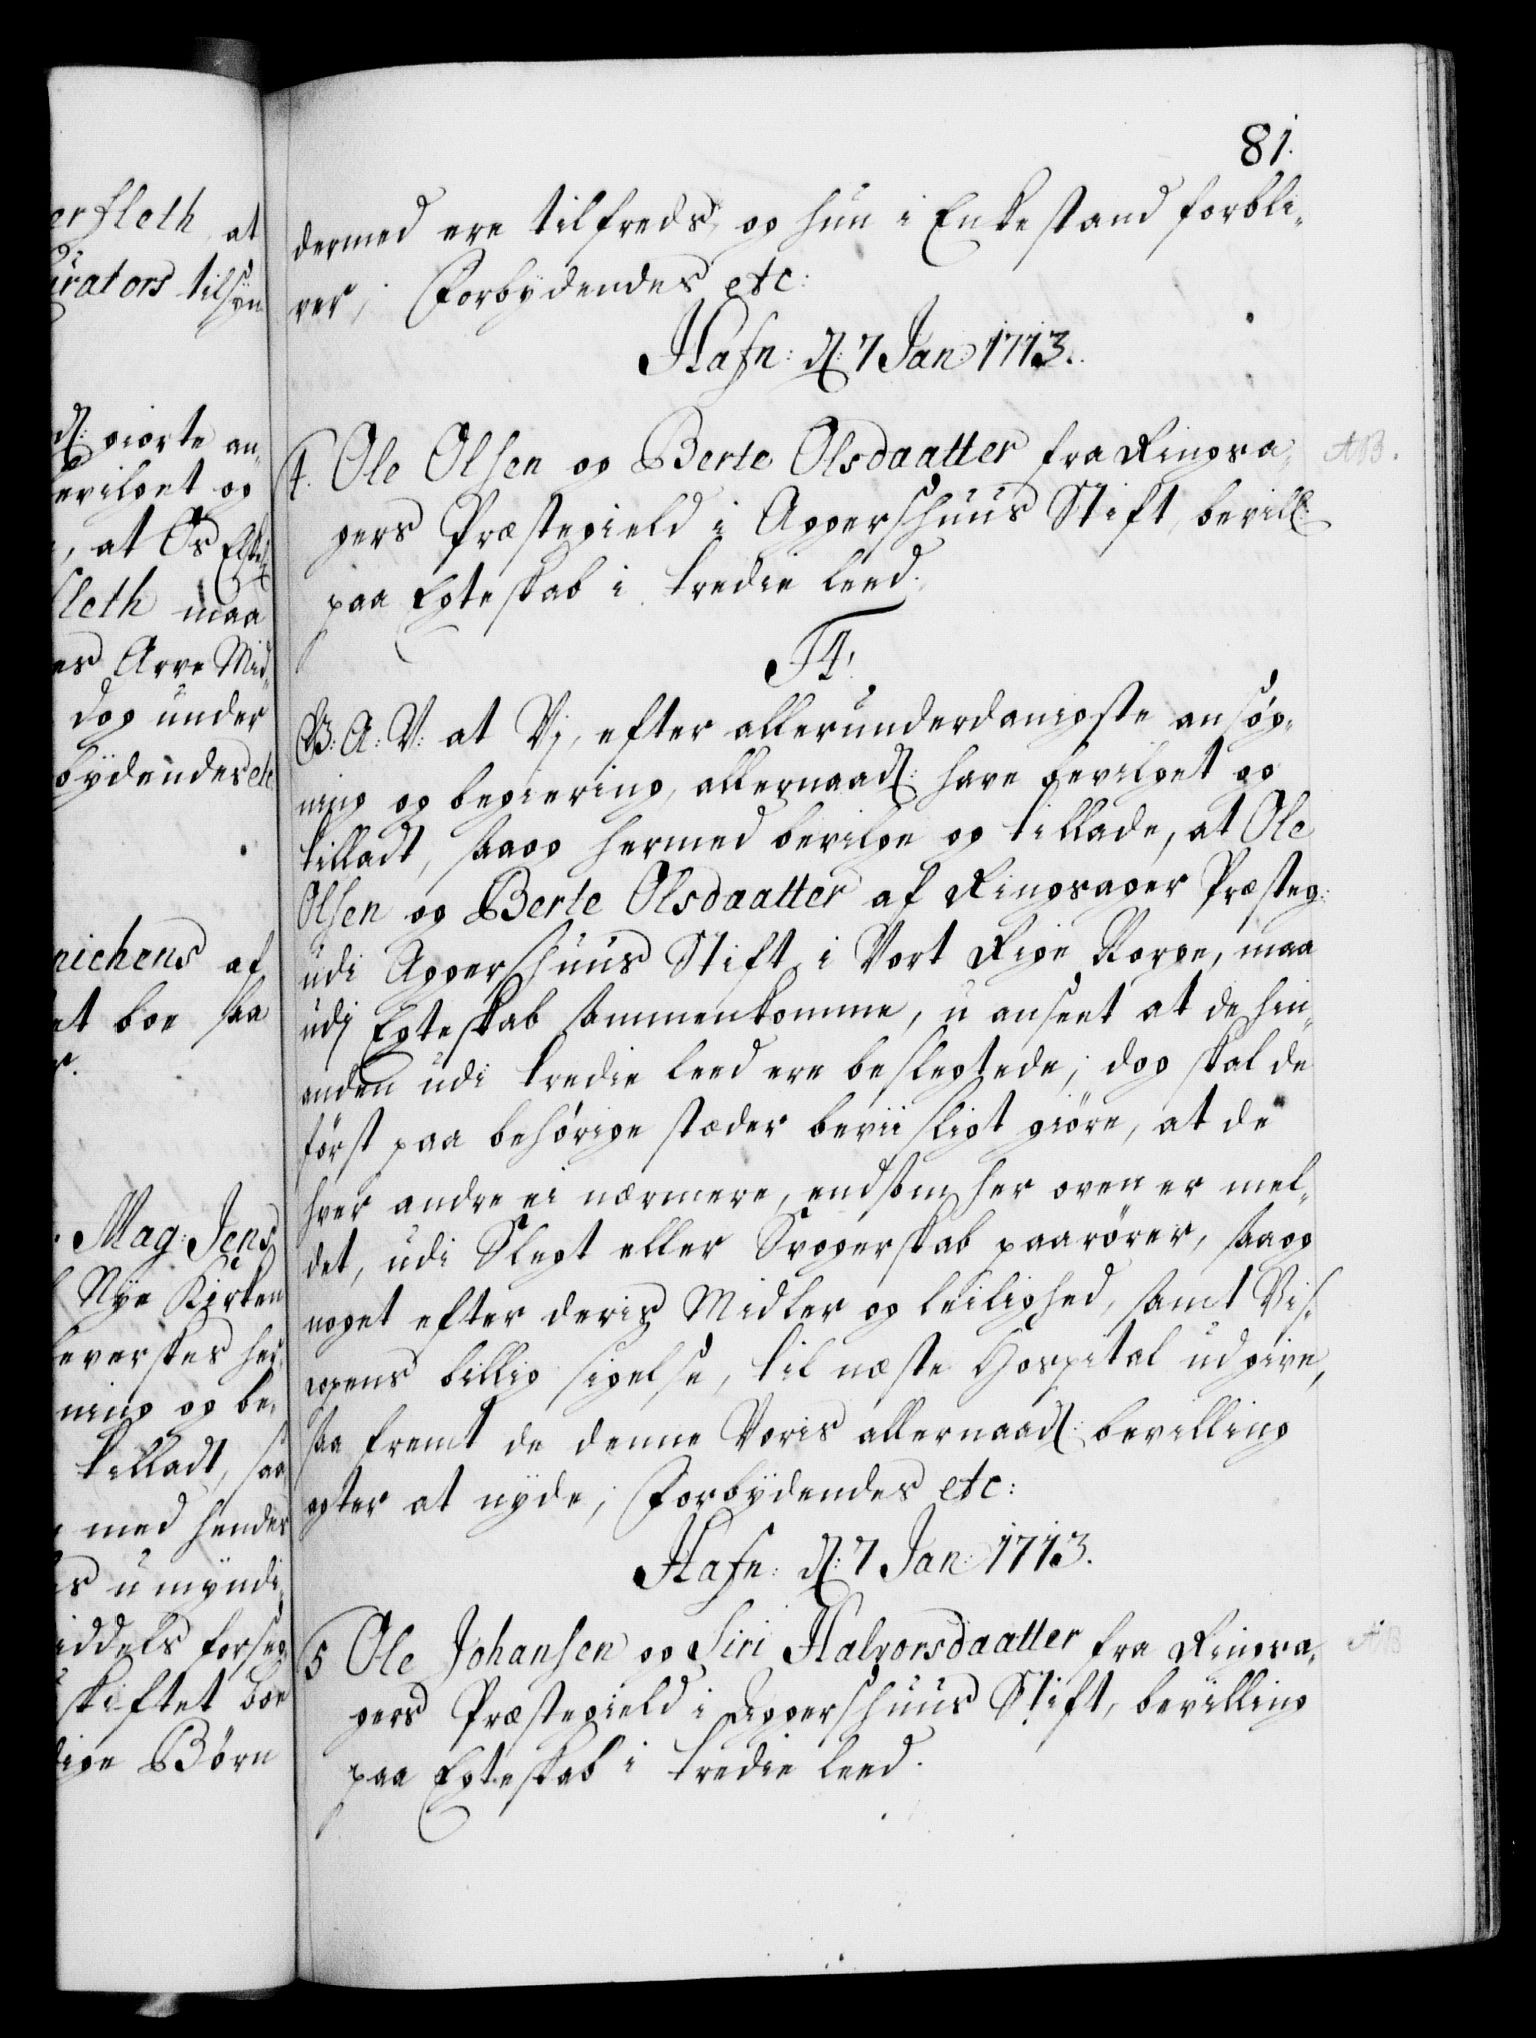 er Fleth, at
urators tilsyn
d: giorte an-
bevilget og
, at Os Elskel:
Fleth maa
es Arve Mid-
dog under
bÿdendes etc
nichens af
et boe saa
r.
Mag: Jens
Nÿe Kirken
leverskes her-
ning og be-
tilladt, saa
med hendes
s umÿndi-
iddels forseg-
skiftet boe
dige Börn
81.
dermed ere tilfreds, og hun i Enkestand forbli-
ver; Forbÿdendes etc:
Hafn: d: 7 Jan: 1713.
4. Ole Olsen og Berte Olsdaatter fra Ringsa-
gers Præstegield i Aggershuus Stift, bevill:
paa Egteskab i tredie leed.
F4!
G: A: V: at Vj, efter allerunderdanigste ansög-
ning og begiering, allernaad: have bevilget og
tilladt, saa og hermed bevilge og tillade, at Ole
Olsen og Berte Olsdaatter af Ringsager Præsteg:
udi Aggershuus Stift i Vort Rige Norge, maa
udj Egteskab sammenkomme, u anseet at de hin-
anden udi tredie leed ere beslegtede; dog skal de
först paa behörige stæder beviisligt giöre, at de
hver andre ei nærmere, end som her oven er mel-
det, udi Slegt eller Svogerskab paarörer, saa og
noget efter deris Midler og leilighed, samt Bis-
copens billig sigelse, til næste Hospital udgive,
saa fremt de denne Voris allernaad: bevilling
agter at nÿde; Forbÿdendes etc:
Hafn: d: 7 Jan: 1713.
5 Ole Johansen og Siri Halvorsdaatter fra Ringsa-
gers Præstegield i Aggershuus Stift, bevilling
paa Egteskab i tredie leed.
AB.
AB